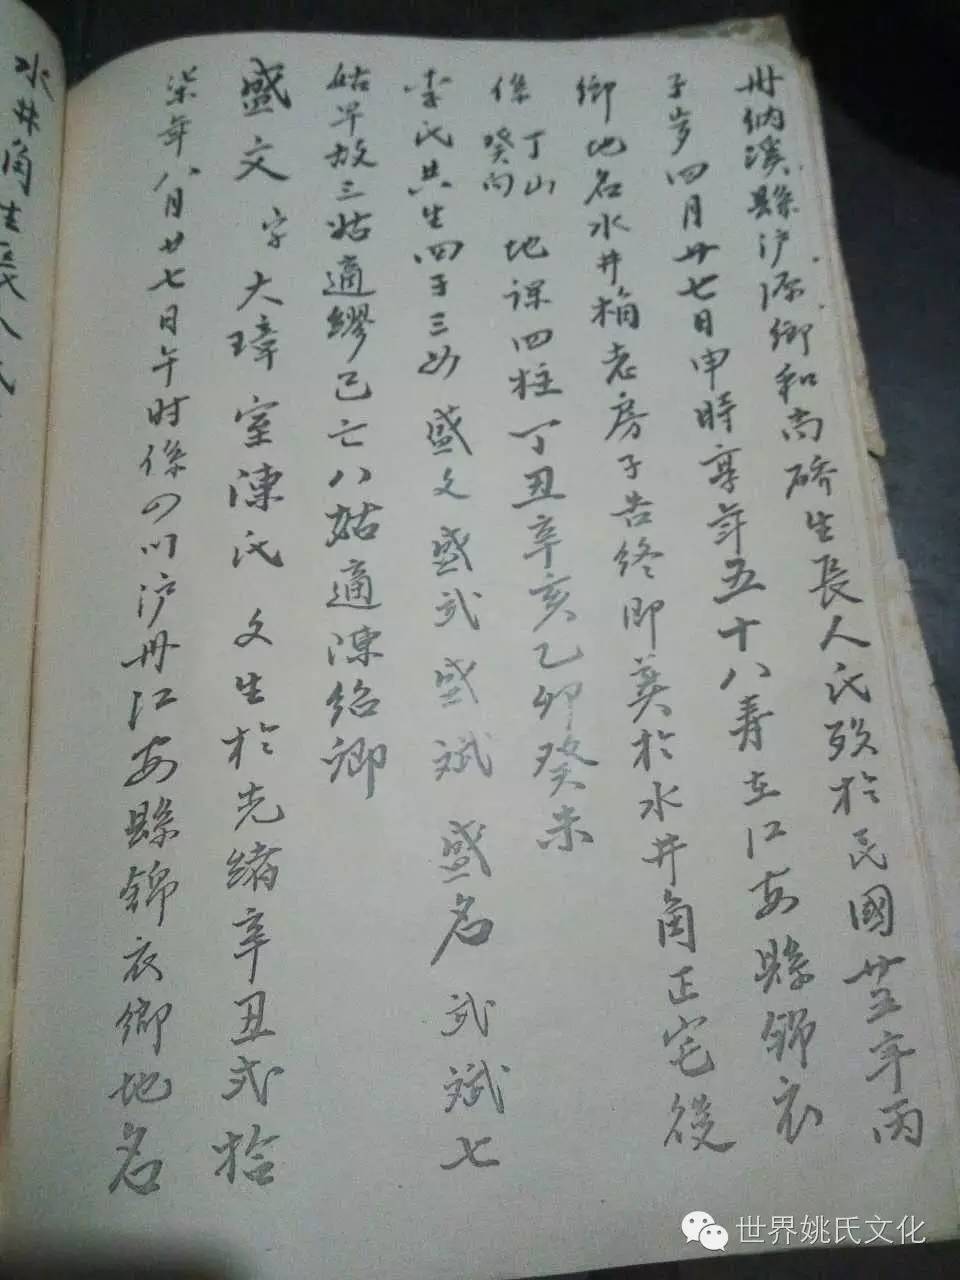 州纳溪縣沪源鄉和尚硚生長人氏殁於民國廿五年丙
子岁四月廿七日申時享年五十八寿在江安縣錦衣
鄉地名水井桷老房子告终即葬於水井角正宅後
係丁山癸向 地课四柱丁丑辛亥乙卯癸未
李氏共生四子三女 盛文盛武盛斌 盛名 武斌七
姑早故三姑適繆已亡八姑適陳绍卿
盛文 字大璋室陳氏 文生於光緒辛丑式拾
柒年八月廿七日午时係四川沪州江安縣錦衣鄉地名
水井角生長人氏
世界姚氏文化